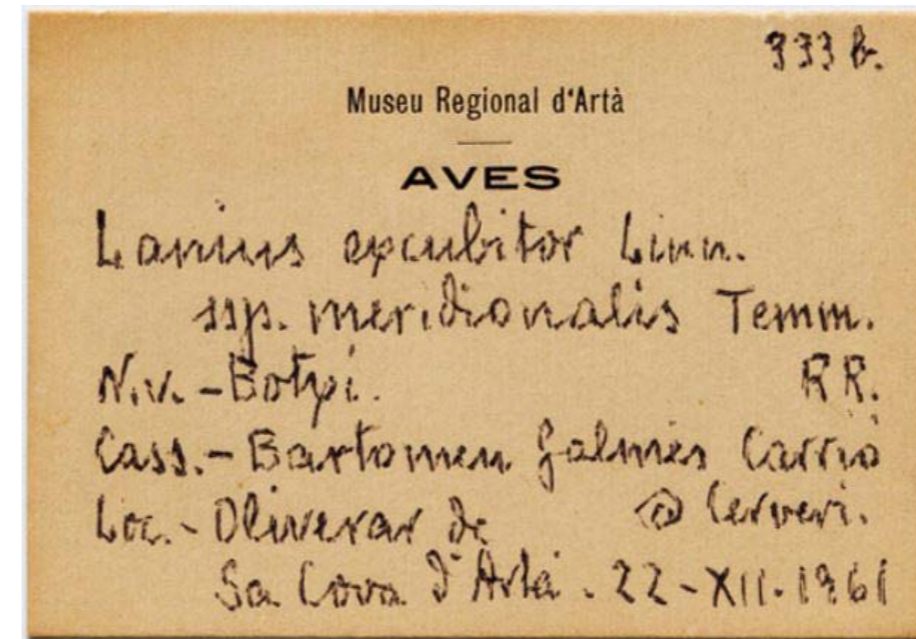 333 b.
Museu Regional d'Artà
AVES
Lanius excubitor Linn.
ssp. meridionalis Temm.
N.v. - Botxí. RR.
Cass. - Bartomeu Galmés Carrió
Loc. - Oliverar de Cerverí.
Sa Cova d'Artà. 22-XII-1961